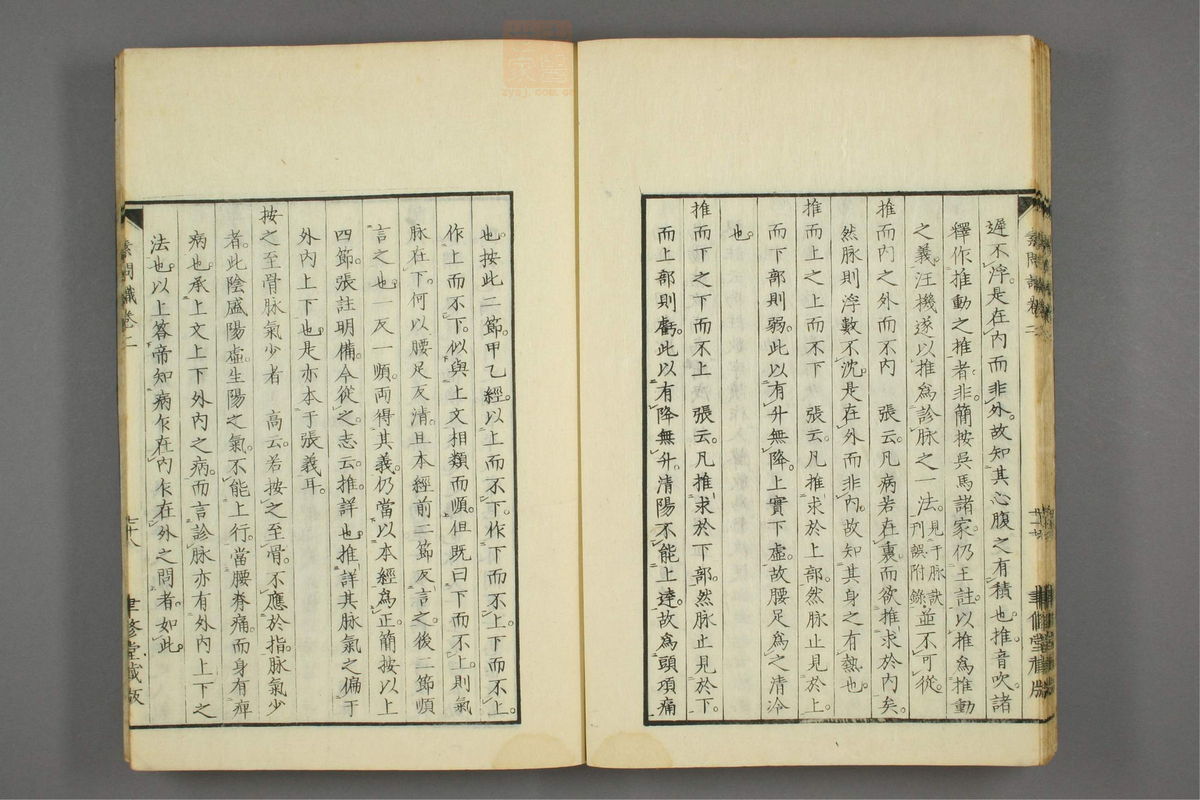 遲不浮。是在內而非外。故知其心腹之有積也。推音吹。諸
釋作推動之推者。非。簡按吳馬諸家。仍王註。以推爲推動
之義。汪機遂以推爲診脉之一法。見于脉訣刊誤附錄。並不可從。
推而內之外而不內　張云。凡病若在裏。而欲推求於內矣。
然脉則浮數不沈。是在外而非內。故知其身之有熱也。
推而上之上而不下　張云。凡推求於上部。然脉止見於上。
而下部則弱。此以有升無降。上實下虛。故腰足爲之清冷
也。
推而下之下而不上　張云。凡推求於下部。然脉止見於下。
而上部則虧。此以有降無升。清陽不能上達。故爲頭項痛
也。按此二節。甲乙經。以上而不下。作下而不上。下而不上。
作上而不下。似與上文相類而順。但既曰下而不上。則氣
脉在下。何以腰足反清。且本經前二節反言之。後二節順
言之也。一反一順。兩得其義。仍當以本經爲正。簡按以上
四節。張註明備。今從之。志云。推詳也。推詳其脉氣之偏于
外內上下也。是亦本于張義耳。
按之至骨脉氣少者　高云。若按之至骨。不應於指。脉氣少
者。此陰盛陽虛。生陽之氣。不能上行。當腰脊痛而身有痺
病也。承上文上下外內之病。而言診脉亦有外內上下之
法也。以上答帝知病乍在內乍在外之問者。如此。
素問識卷二
七十八
聿修堂藏版